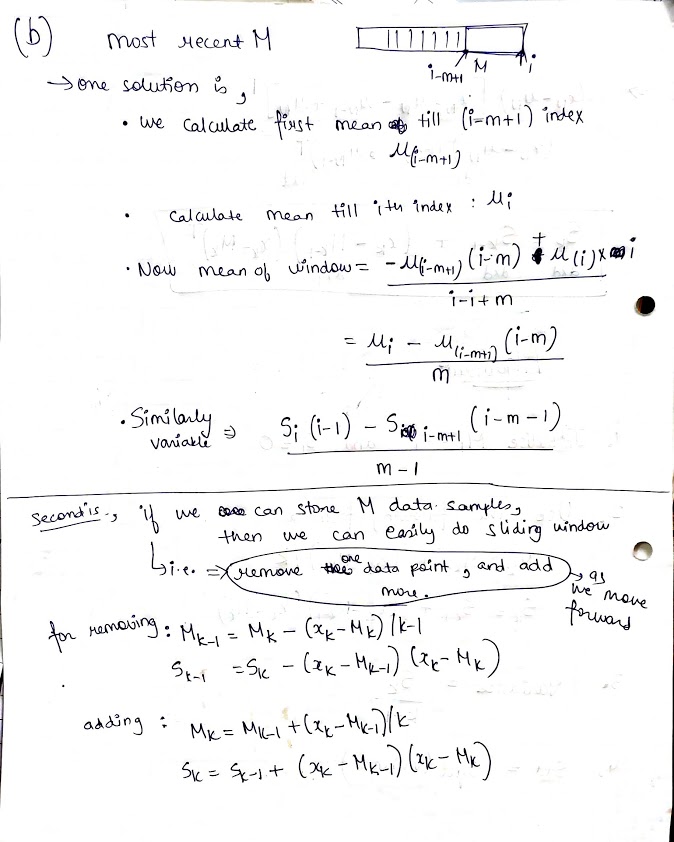 (b) most recent M
i-m+1 M i
→ one solution is,
• we calculate first mean till (i=m+1) index
μ(i-m+1)
• calculate mean till ith index : μi
• Now mean of window = -μ(i-m+1) (i-m) + μ(i) x i
i-i+m
= μi - μ(i-m+1) (i-m)
m
• Similarly variable ⇒ Si (i-1) - S i-m+1 (i-m-1)
m-1
Second is, if we can store M data samples,
then we can easily do sliding window
↳ i.e. ⇒ remove one data point, and add more. → as we move forward
for removing : Mk-1 = Mk - (xk - Mk) / k-1
Sk-1 = Sk - (xk - Mk-1) (xk - Mk)
adding : Mk = Mk-1 + (xk - Mk-1)/k
Sk = Sk-1 + (xk - Mk-1) (xk - Mk)